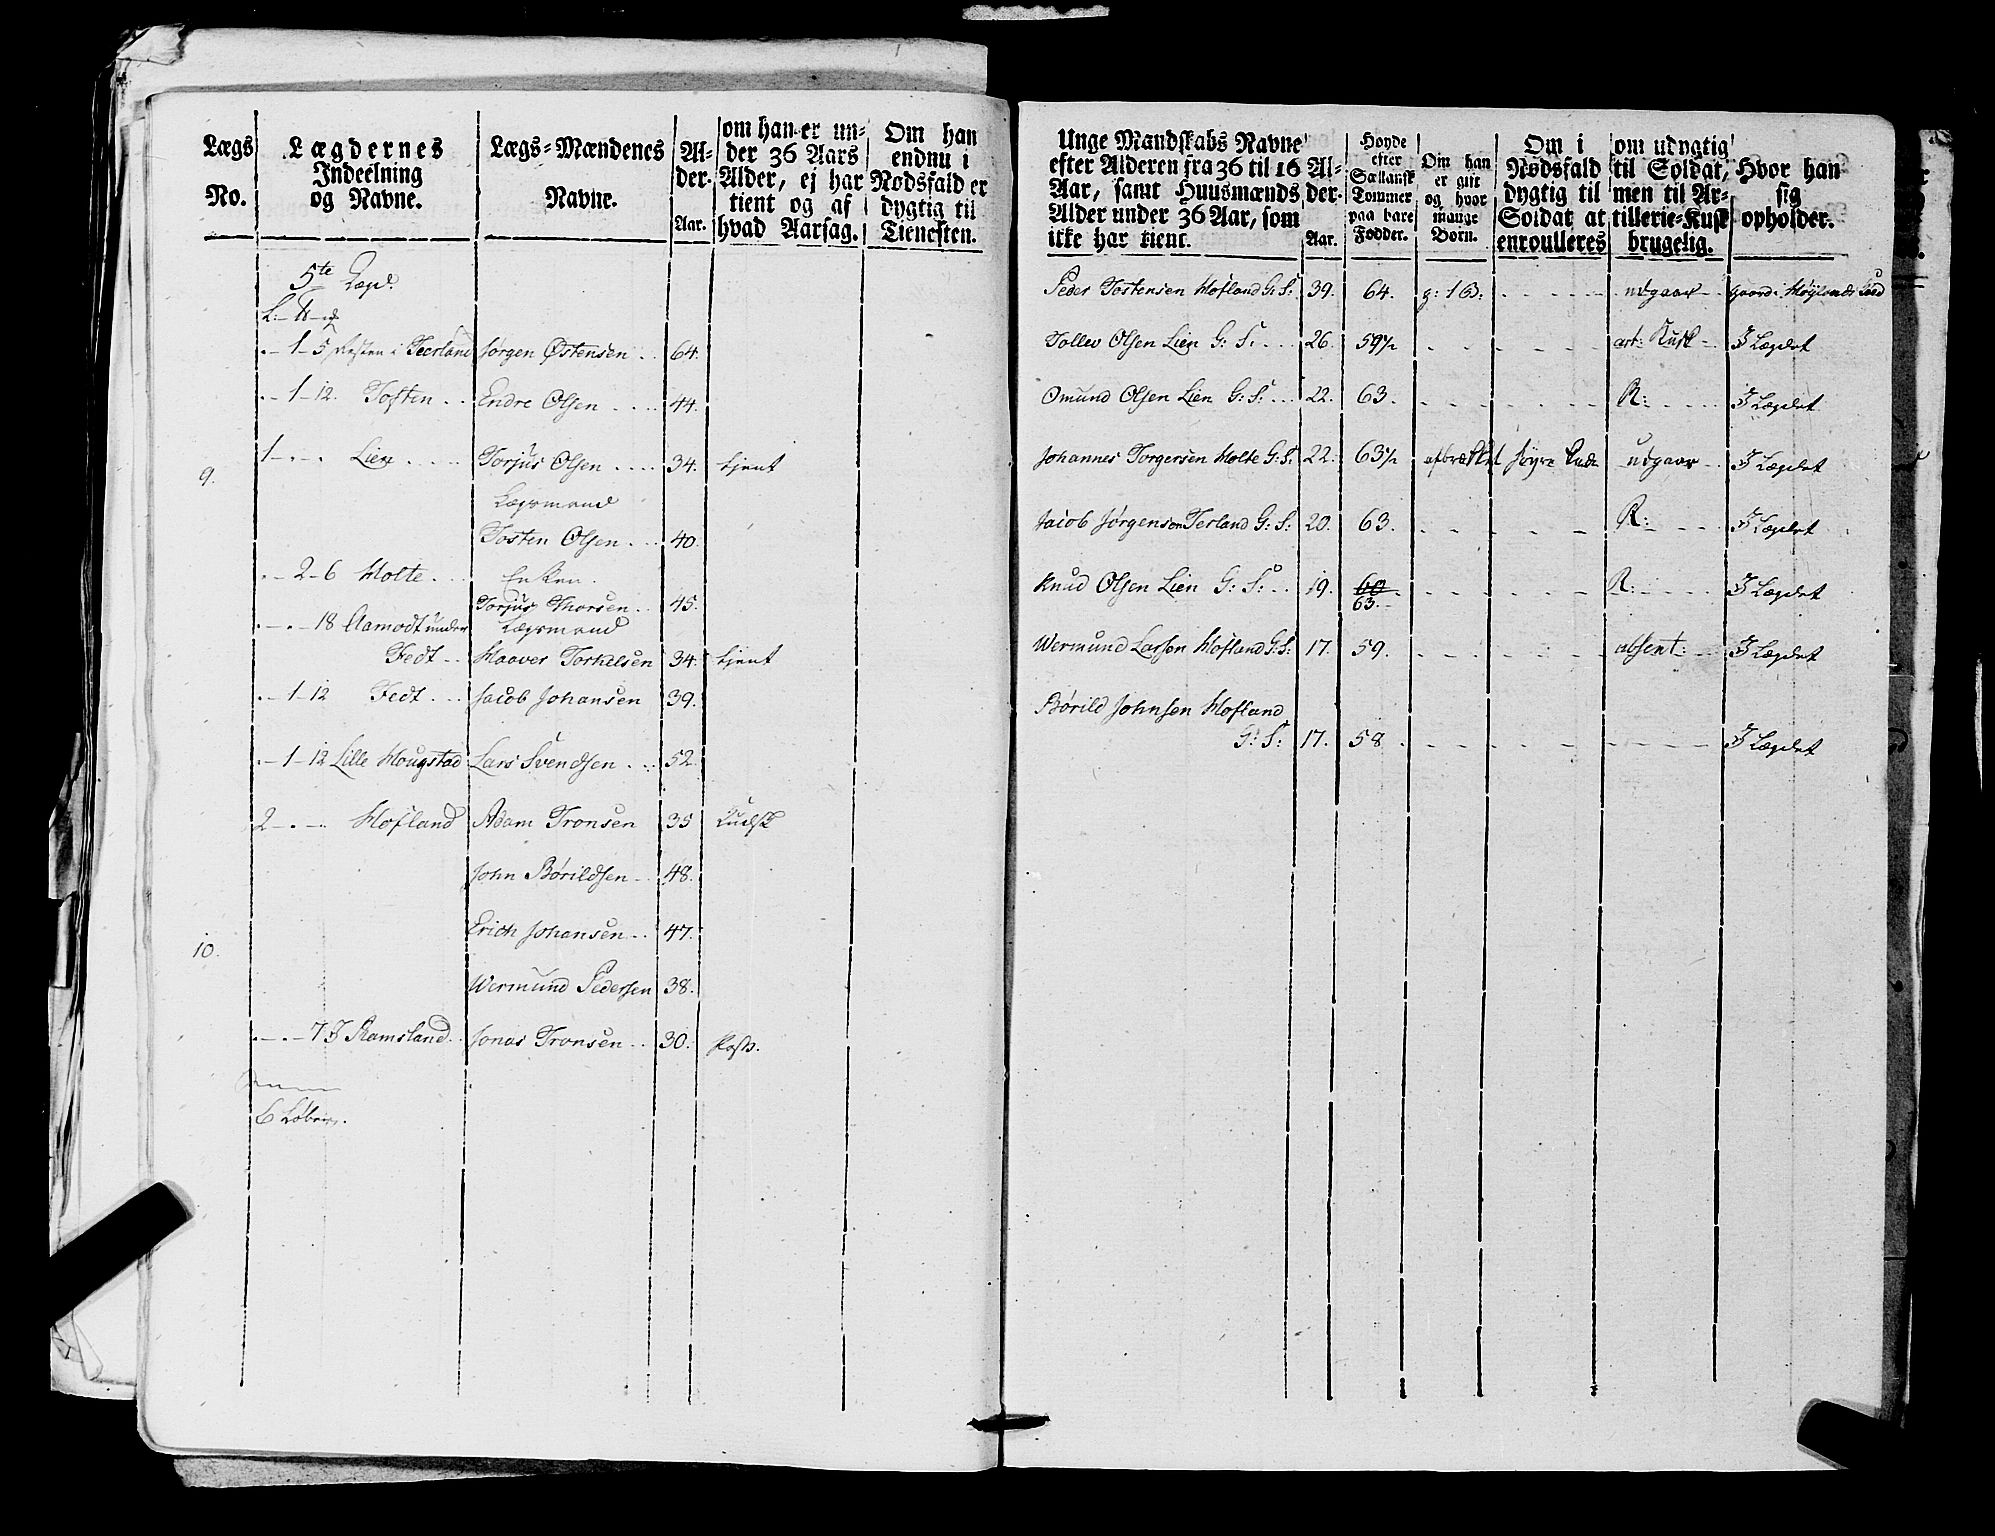 Lægs No.
Lægdernes Indeelning og Navne.
Lægs-Mændenes Navne.
Alder. Aar.
om han er under 36 Aars Alder, ej har tient og af hvad Aarsag.
Om han endnu i Nødsfald er dygtig til Tienesten.
5te Lægd.
.-1-5 Resten i Teerland Jørgen Østensen .. 64.
.-1-12. Toften .. Endre Olsen .... 44.
1-.-. Lien .... Torjus Olsen .... 34. tjent
9.
Lægsmand
Tosten Olsen ... 40.
.-2-6 Molte ... Enken.
Torjus Thorsen .. 45.
.-.-18 Aamodt under Lægsmand
Fedt .. Haaver Torkelsen 34. tjent
.-1-12 Fedt ... Jacob Johansen 39.
.-1-12 Lille Hougstad Lars Svendsen ... 52.
2-.-. Høfland Adam Tronsen 35 Kudsk
John Børildsen .. 48.
Erich Johansen .. 47.
10.
Wermund Pedersen 38.
.-.-7 I Ramsland .. Jonas Tronsen .. 30.
6 Løber
Unge Mandskabs Navne efter Alderen fra 36 til 16 Aar, samt Huusmænds Alder under 36 Aar, som ikke har tient.
Alder. Aar.
Høyde efter Sællansk Tommer paa bare Fødder.
Om han er gift og hvor mange Børn.
Om i Nødsfald dygtig til Soldat at enroulleres
om udygtig til Soldat, men til Artillerie-Kusk brugelig.
Hvor han sig opholder.
Peder Tostensen Høfland G: S: 39. 64. g: 1 B: udgaar gaard i Høylands Sogn
Tollev Olsen Lien G: S: ... 26. 59½ art: Kusk I Lægdet
Omund Olsen Lien G: S: ... 22. 63. R: I Lægdet
Johannes Torgersen Molte G: S: 22. 63½ afbrækket høyre udgaar I Lægdet
Jacob Jørgensen Terland G: S: 20. 63. R: I Lægdet
Knud Olsen Lien G: S: .. 19. 60 63. R: I Lægdet
Wermund Larsen Høfland G: S: 17. 59. absent: I Lægdet
Børild Johnsen Høfland
G: S: 17. 58. I Lægdet